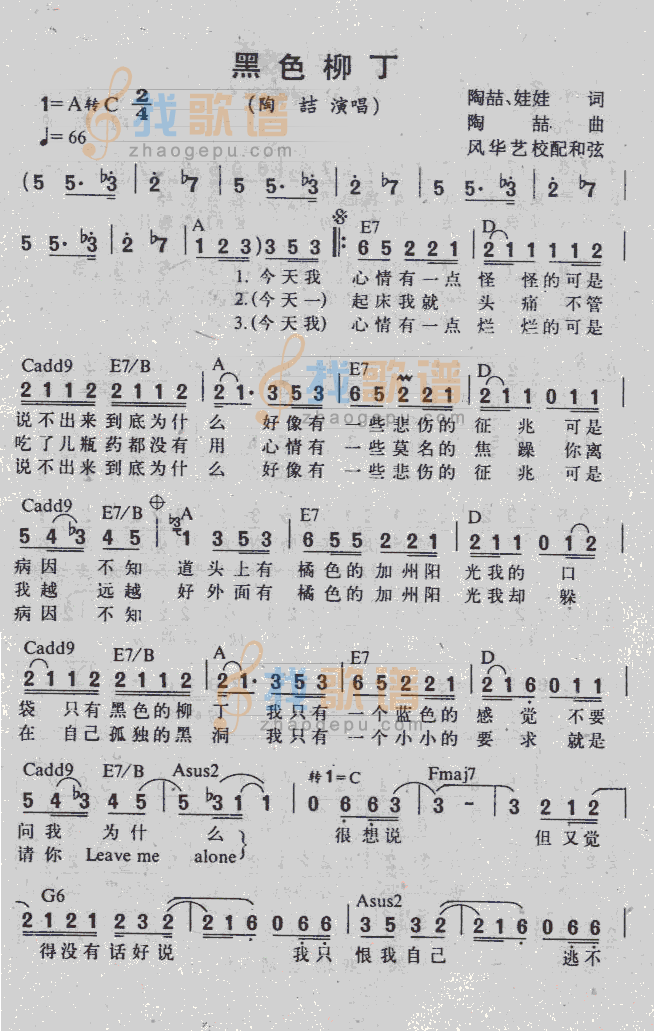 黑色柳丁
1=A转C 2/4 (陶喆 演唱) 陶喆、娃娃 词
♩=66 陶喆 曲
风华艺校配和弦
找歌谱
zhaogepu.com
(5 5· ♭3 | 2 ♭7 | 5 5· ♭3 | 2 ♭7 | 5 5· ♭3 | 2 ♭7 |
A E7 D
5 5· ♭3 | 2 ♭7 | 1 2 3) 3 5 3 |: 6 5 2 2 1 | 2 1 1 1 1 2 |
1. 今天我 心情有一点 怪 怪的可是
2.(今天一) 起床我就 头 痛 不管
3.(今天我) 心情有一点 烂 烂的可是
Cadd9 E7/B A E7 D
2 1 1 2 2 1 1 2 | 2 1· 3 5 3 | 6 5 2 2 1 | 2 1 1 0 1 1 |
说不出来到底为什 么 好像有 一些悲伤的 征 兆 可是
吃了几瓶药都没有 用 心情有 一些莫名的 焦 躁 你离
说不出来到底为什 么 好像有 一些悲伤的 征 兆 可是
Cadd9 E7/B A E7 D
5 4 ♭3 4 5 | 1 3 5 3 | 6 5 5 2 2 1 | 2 1 1 0 1 2 |
病因 不知 道头上有 橘色的加州阳 光我的 口
我越 远越 好外面有 橘色的加州阳 光我却 躲
病因 不知
Cadd9 E7/B A E7 D
2 1 1 2 2 1 1 2 | 2 1· 3 5 3 | 6 5 2 2 1 | 2 1 6 0 1 1 |
袋 只有黑色的柳 丁 我只有 一个蓝色的 感 觉 不要
在 自己孤独的黑 洞 我只有 一个小小的 要 求 就是
Cadd9 E7/B Asus2 转1=C Fmaj7
5 4 ♭3 4 5 | 5 ♭3 1 1 | 0 6 6 3 | 3 - | 3 2 1 2 |
问我 为什 么 很想说 但又觉
请你 Leave me alone
G6 Asus2
2 1 2 1 2 3 2 | 2 1 6 0 6 6 | 3 5 3 2 | 2 1 6 0 6 6 |
得没有话好说 我只 恨我自己 逃不